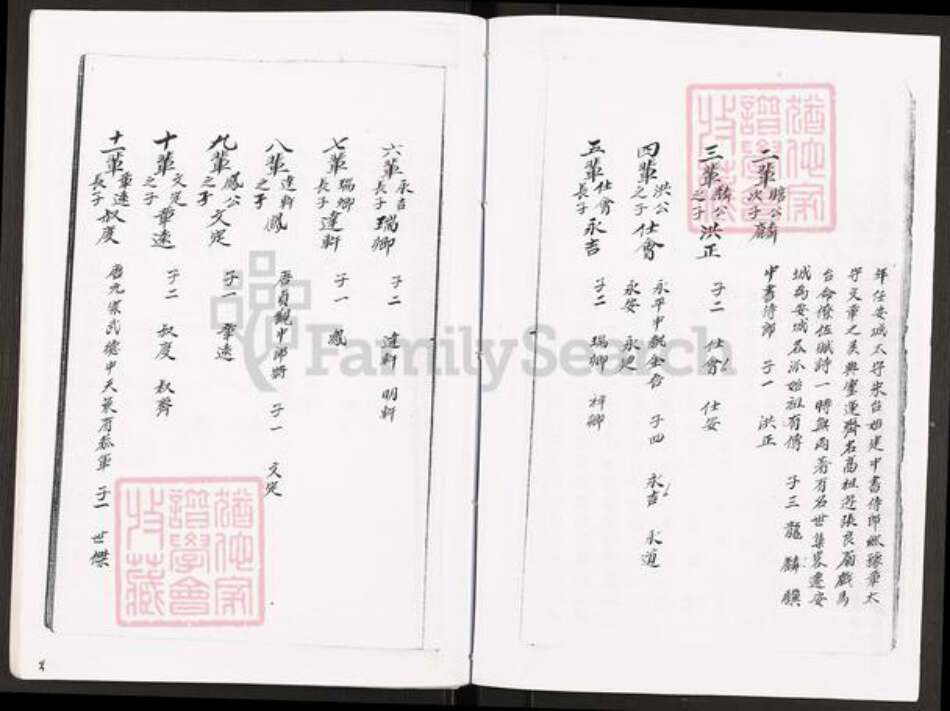 年任安城太守宋台始建中書侍郎繼豫章太
守文章之美與靈運齊名高祖遊張良廟戲馬
台命僚佐賦詩一時無兩著有名世集畧遷安
城為安城石派始祖有傳 子三 龍 麟 驥
二輩瞻公次子麟 中書侍郎 子一 洪正
三輩麟公之子洪正 子二 仕會 仕安
四輩洪公之子仕會 永平中 子四 永吉 永道
永安 永定
五輩仕會長子永吉 子二 瑞卿 梓卿
六輩永吉長子瑞卿 子二 達軒 明軒
七輩瑞卿長子達軒 子一 鳳
八輩達軒之子鳳 唐貞觀中郎將 子一 文定
九輩鳳公之子文定 子一 肇遠
十輩文定之子肇遠 子二 叔度 叔齊
十一輩肇遠長子叔度 唐 宗武德中 子一 世傑
猶他家
譜學會
收藏
FamilySearch
猶他家
譜學會
收藏